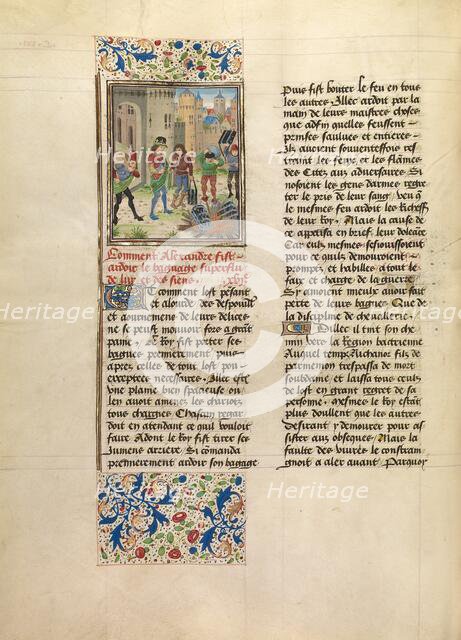 Comment Alexandre fist
ardoir le bagaige superflu
de luy et des siens
Et comment lost pesant
et alourde des despoulles
et aournement de leurs delices
ne se peust mouvoir fors a grant
paine Le Roy fist getter ses
bagues premierement puis
apres celles de tout lost
exceptees necessaires Illec est
une plaine bien spacieuse ou
len avoit amene les chariots
tous chargies Chascun regar
doit en attendant ce quil vouloit
faire Adont le Roy fist tirer ses
Jumens arriere Si comanda
premierement ardoir son bagage
Puis fist bouter le feu en tous
les autres Illec ardoit par la
main de leurs maistres choses
que adfin quelles feussent
saulves et entieres
Ilz avoient souventesfois res
traint les feux et les flames
des Citez aux adversaires Si
nosoient les gens darmes regre
ter le pris de leur sang veu que
le mesmes feu ardoit les Richesses
de leur Roy Mais la cause de
ce appaisa en brief leur doleance
Car eulx mesmes sesjouissoient
pour ce quilz demouroient
promptz et habilles a tout le
fays et charge de la guerre
Et amoient mieulx avoir fait
perte de leurs bagues Que de
la discipline de chevallerie
Dillec il tint son che
min vers la Region bactrienne
Auquel temps filz de
parmenion trespassa de mort
soubdaine et laissa tous ceulx
de lost en grant regret de sa
personne Mesmes le Roy estant
plus doullent que les autres
desirant y demourer pour as
sister aux obseques Mais la
faulte des vivres le constrain
gnoit a aler avant Parquoy
Heritage
Heritage
Heritage
Heritage
Heritage
Heritage